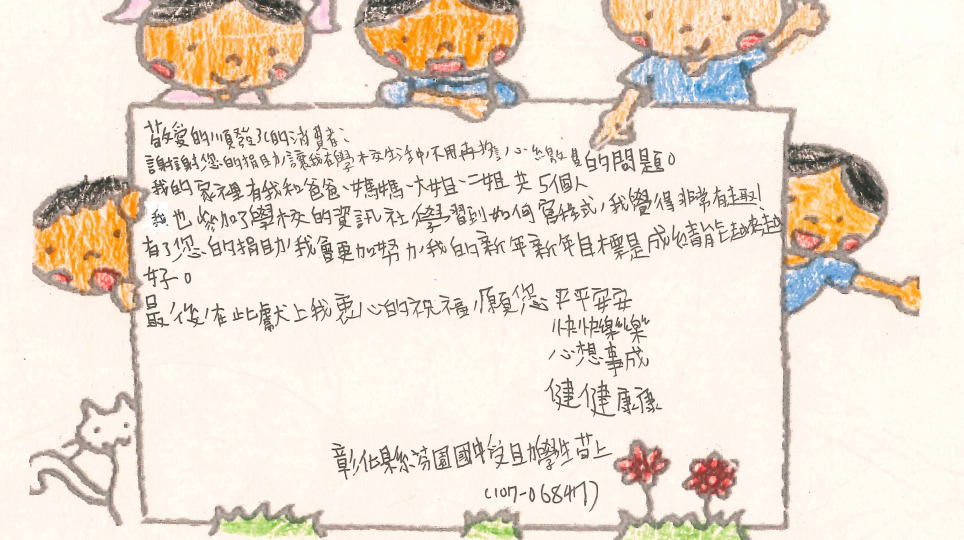 敬愛的順發3C的消費者、
謝謝您的捐助,讓我在學校生活中,不用再擔心繳費的問題。
我的家裡有我和爸爸、媽媽、大姐、二姐共5個人
我也參加了學校的資訊社,學習到如何寫程式,我覺得非常有趣!
有了您的捐助,我會更加努力,我的新年新年目標是成績能越來越
好。
最後,在此獻上我衷心的祝福,願您平平安安
快快樂樂
心想事成
健健康康
彰化縣芬園國中受助學生 上
(107-06847)